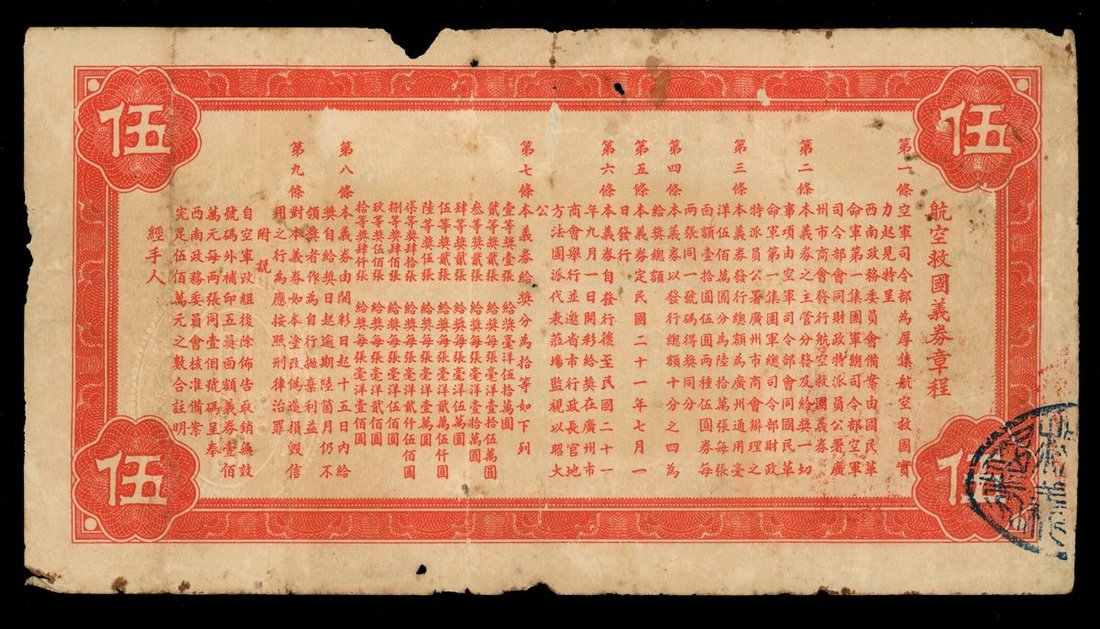 伍
伍
航空救國義券章程
第一條 空軍司令部為厚集航空救國實
力起見特呈
西南政務委員會備案由國民革
命軍第一集團軍總司令部空軍
司令部會同財政特派員公署廣
州市商會發行航空救國義券
第二條 本義券之主管分發及給獎一切
事項由空軍司令部會同國民革
命軍第一集團軍總司令部財政
特派員公署廣州市商會辦理之
第三條 本義券發行總額為廣州通用毫
洋伍佰萬圓分為陸拾萬張每張
面額壹拾圓伍圓兩種伍圓券每
兩張同一號碼得獎同分
第四條 本義券以發行總額十分之四為
給獎總額
第五條 本義券定民國二十一年七月一
日發行
第六條 本義券自發行後至民國二十一
年九月一日開彩給獎在廣州市
商會舉行並邀省市行政長官地
方法團派代表蒞場監視以昭大
公
第七條 本義券給獎分為拾等如下列
壹等獎壹張 給獎毫洋伍拾萬圓
貳等獎貳張 給獎每張毫洋拾伍萬圓
叁等獎叁張 給獎每張毫洋壹拾萬圓
肆等獎肆張 給獎每張毫洋伍萬圓
伍等獎貳張 給獎每張毫洋貳萬伍仟圓
陸等獎伍張 給獎每張毫洋壹萬圓
柒等獎肆拾張 給獎每張毫洋壹仟伍佰圓
捌等獎肆佰張 給獎每張毫洋伍佰圓
玖等獎伍佰張 給獎每張毫洋貳佰圓
拾等獎肆仟張 給獎每張毫洋壹佰圓
第八條 本義券由開彩日起十五日內給
獎自給獎日起逾期陸箇月仍不
領獎者作為自行拋棄利益
第九條 對本義券如有塗改偽造損毀信
用之行為應按照刑律治罪
附說
自空軍改組後除佈告取銷無效
號碼外補印五員面額義券壹佰
萬元每兩張同壹個號碼呈奉
西南政務委員會核准備案
完足伍佰萬元之數合註明
經手人
伍
伍